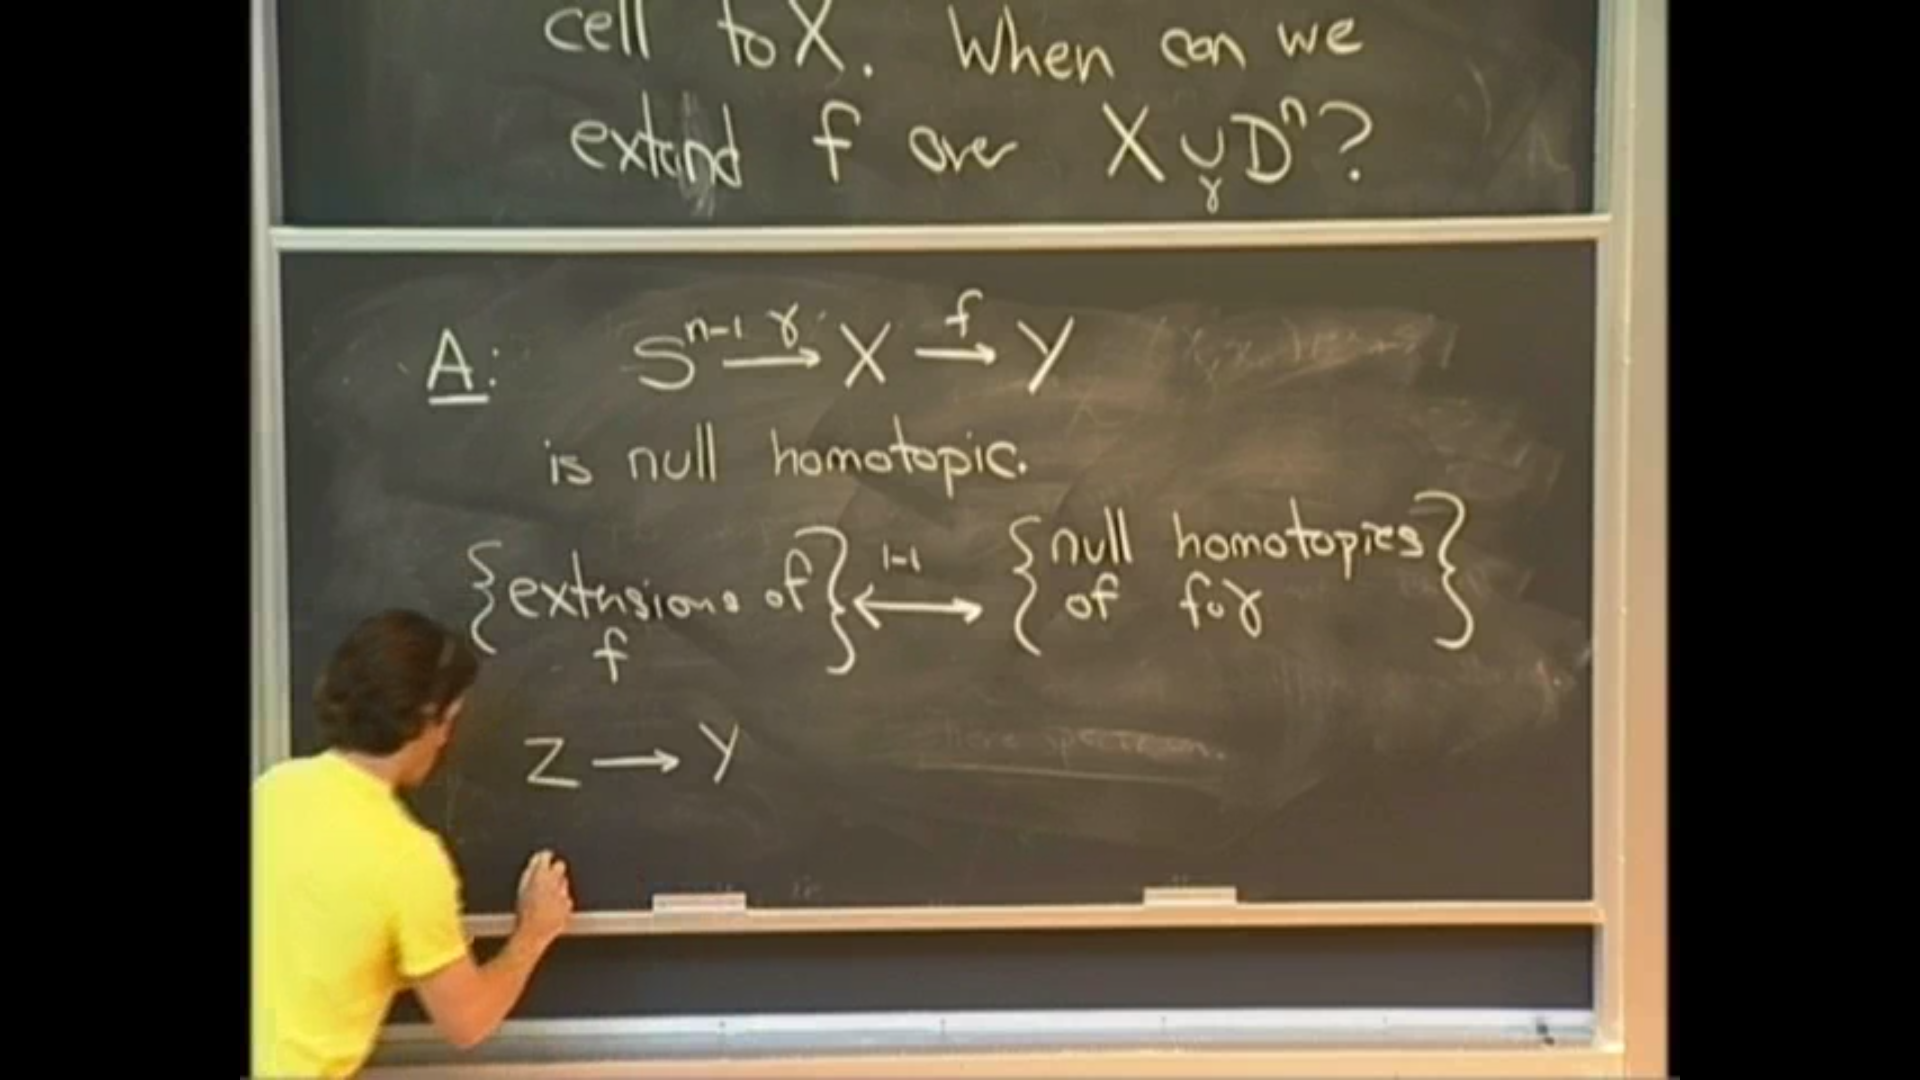 cell to X. When can we
extend f over X ∪_γ Dⁿ?
A: Sⁿ⁻¹ —γ→ X —f→ Y
is null homotopic.
{extensions of f} ←1-1→ {null homotopies of f∘γ}
Z → Y